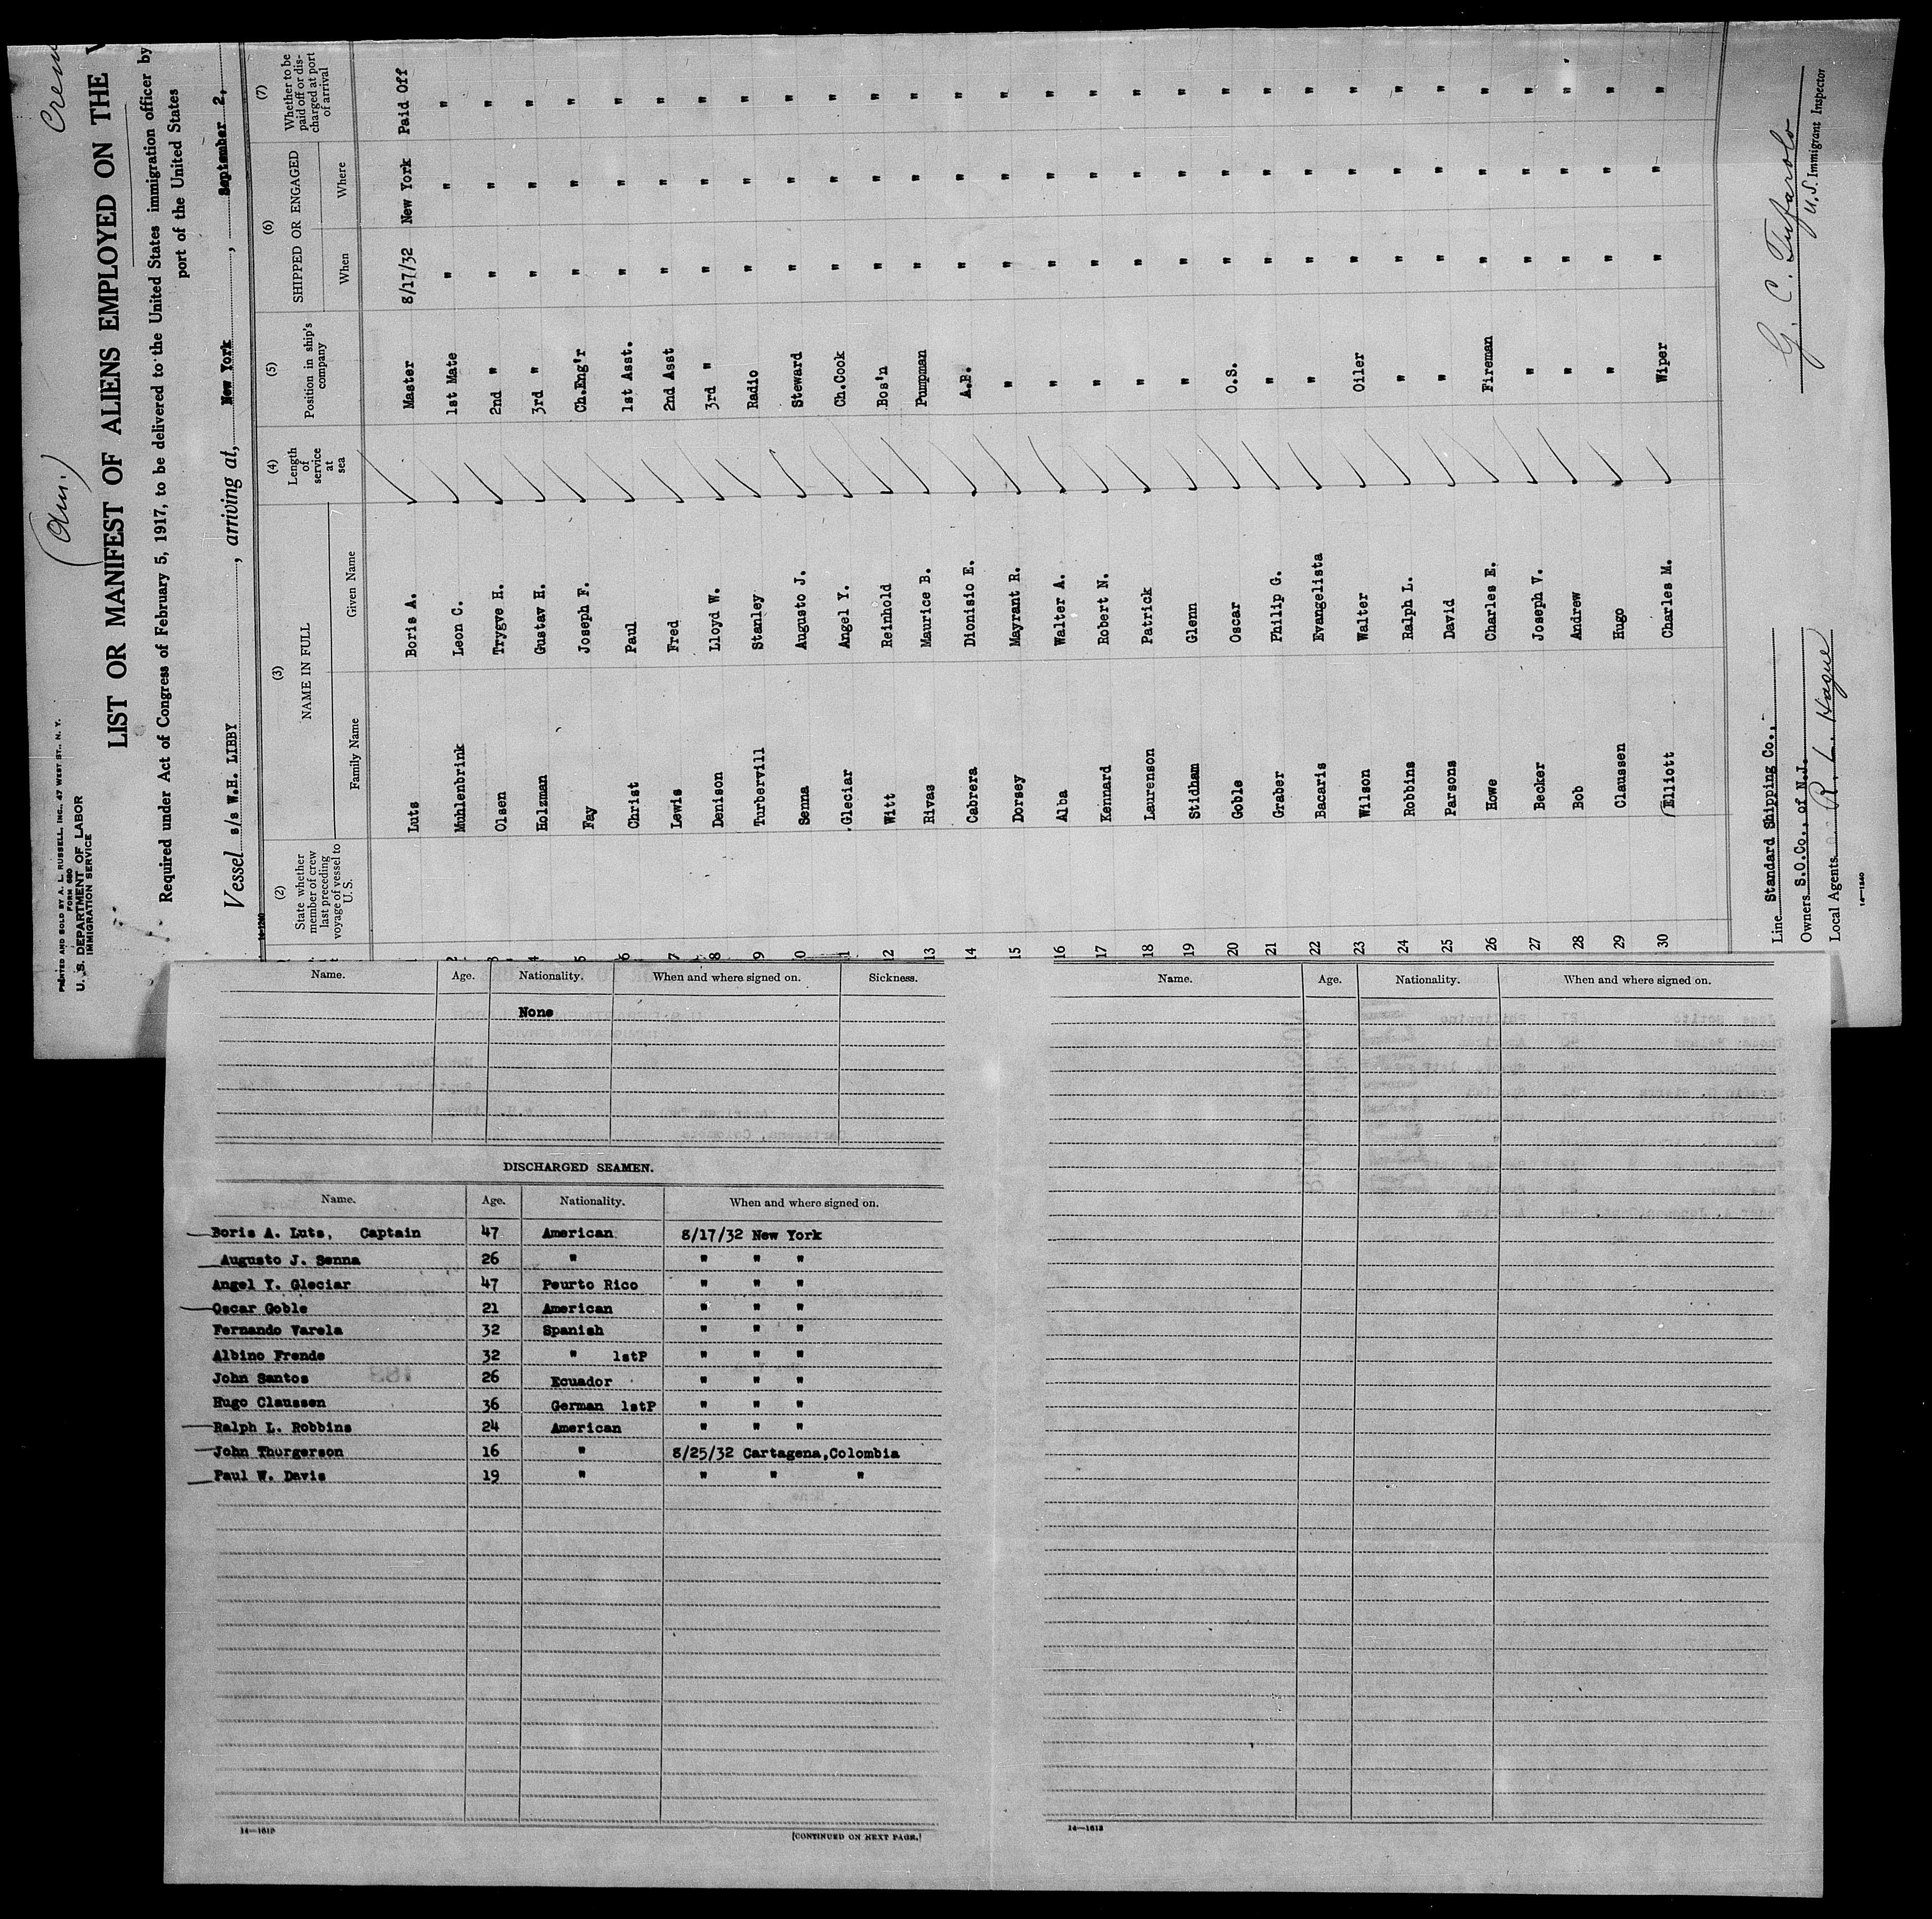 Crew
(Am.)
PRINTED AND SOLD BY A. L. RUSSELL, INC., 47 WEST ST., N. Y.
FORM 680
U. S. DEPARTMENT OF LABOR
IMMIGRATION SERVICE
LIST OR MANIFEST OF ALIENS EMPLOYED ON THE V
Required under Act of Congress of February 5, 1917, to be delivered to the United States immigration officer by
port of the United States
Vessel s/s W.H. LIBBY, arriving at, New York, September 2,
14-1240
(2) (3) (4) (5) (6) (7)
State whether member of crew last preceding voyage of vessel to U. S. NAME IN FULL Family Name Given Name Length of service at sea Position in ship's company SHIPPED OR ENGAGED When Where Whether to be paid off or discharged at port of arrival
1 Luts Boris A. Master 8/17/32 New York Paid Off
2 Muhlenbrink Leon C. 1st Mate " " "
3 Olsen Trygve H. 2nd " " " "
4 Holzman Gustav H. 3rd " " " "
5 Fay Joseph F. Ch.Eng'r " " "
6 Christ Paul 1st Asst. " " "
7 Lewis Fred 2nd Asst " " "
8 Denison Lloyd W. 3rd " " " "
9 Turbervill Stanley Radio " " "
0 Senna Augusto J. Steward " " "
1 Gleciar Angel Y. Ch.Cook " " "
12 Witt Reinhold Bos'n " " "
13 Rivas Maurice B. Pumpman " " "
14 Cabrera Dionisio E. A.B. " " "
15 Dorsey Mayrant R. " " " "
16 Alba Walter A. " " " "
17 Kennard Robert N. " " " "
18 Laurenson Patrick " " " "
19 Stidham Glenn " " " "
20 Goble Oscar O.S. " " "
21 Graber Philip G. " " " "
22 Bacaris Evangelista " " " "
23 Wilson Walter Oiler " " "
24 Robbins Ralph L. " " " "
25 Parsons David " " " "
26 Howe Charles E. Fireman " " "
27 Becker Joseph V. " " " "
28 Bob Andrew " " " "
29 Claussen Hugo " " " "
30 Elliott Charles M. Wiper " " "
Line Standard Shipping Co.,
Owners S.O.Co., of N.J.
Local Agents R. L. Hague
14—1240
G. C. Tufarolo
U.S. Immigrant Inspector
Name. Age. Nationality. When and where signed on. Sickness.
None
DISCHARGED SEAMEN.
Name. Age. Nationality. When and where signed on.
Boris A. Luts, Captain 47 American 8/17/32 New York
Augusto J. Senna 26 " " " "
Angel Y. Gleciar 47 Peurto Rico " " "
Oscar Goble 21 American " " "
Fernando Varela 32 Spanish " " "
Albino Frende 32 " 1stP " " "
John Santos 26 Ecuador " " "
Hugo Claussen 36 German 1stP " " "
Ralph L. Robbins 24 American " " "
John Thurgerson 16 " 8/25/32 Cartagena,Colombia
Paul W. Davis 19 " " " "
14—1613
[CONTINUED ON NEXT PAGE.]
Name. Age. Nationality. When and where signed on.
14—1613